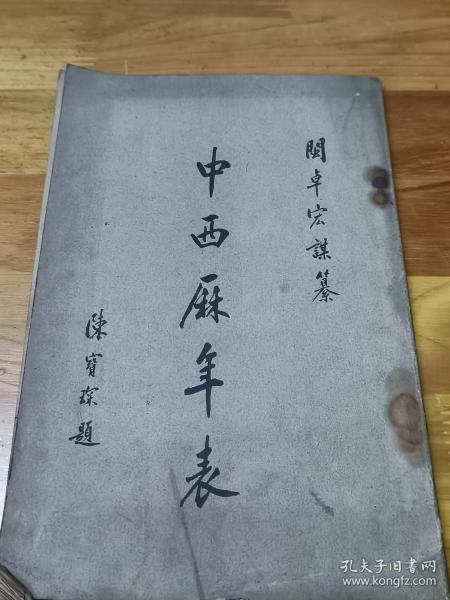 閩卓宏謀纂
中西厤年表
陳寶琛題
孔夫子旧书网
www.kongfz.com